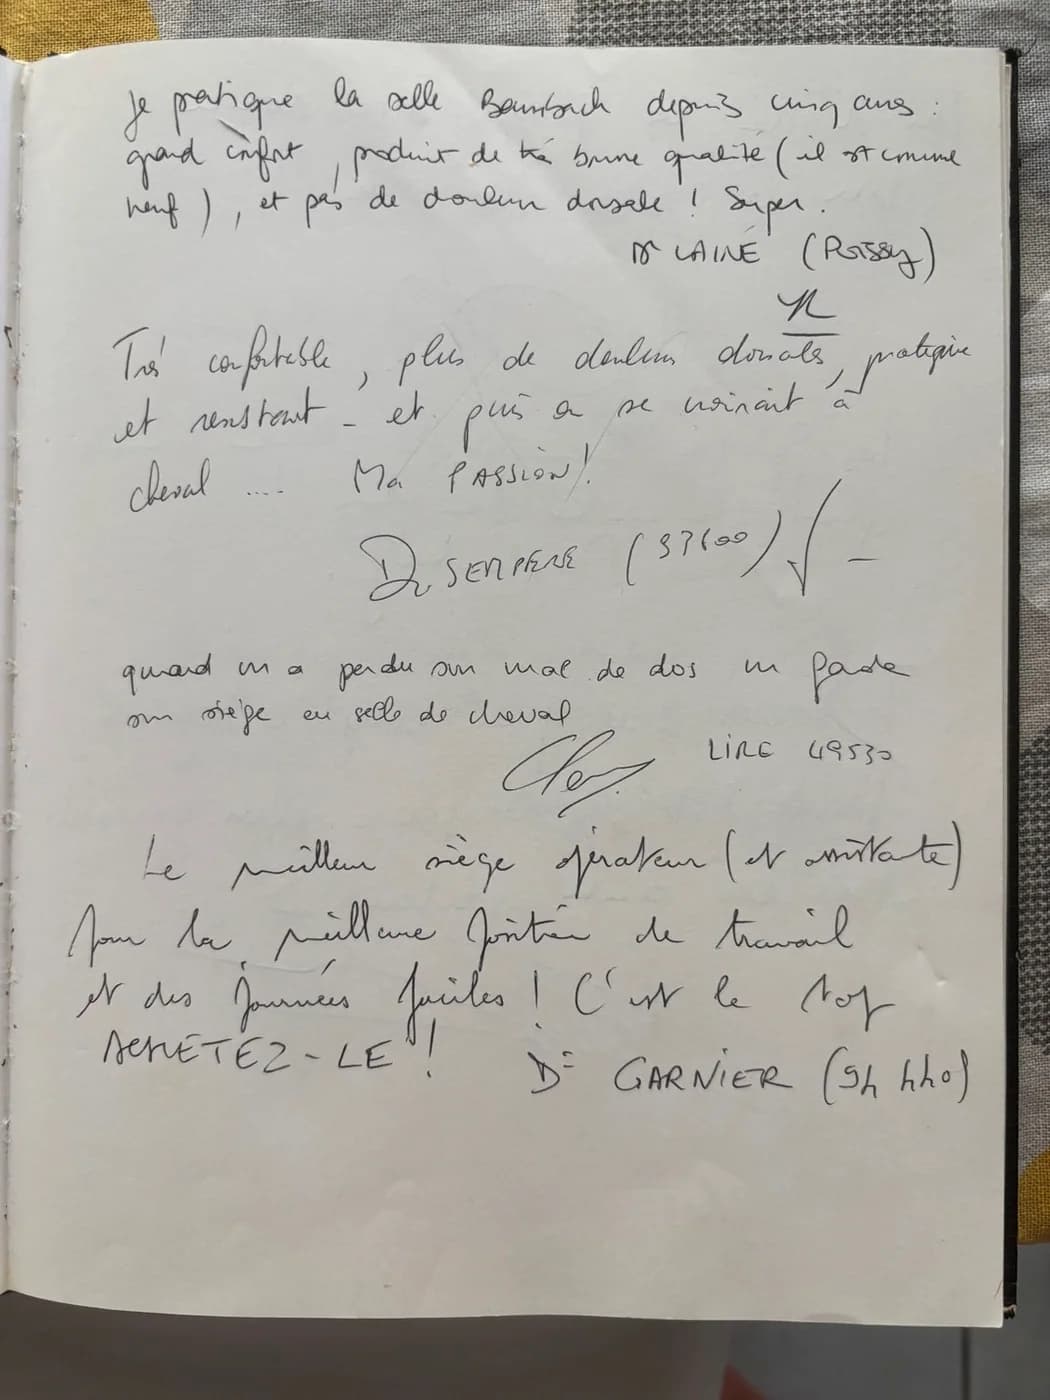 Je pratique la selle Bambach depuis cinq ans :
grand confort, produit de très bonne qualité (il est comme
neuf), et pas de douleur dorsale ! Super.
Dr LAINÉ (Poissy)
Très confortable, plus de douleurs dorsales, pratique
et résistant - et puis on se croirait à
cheval .... Ma PASSION !
Dr SEMPERE (37600)
quand on a perdu son mal de dos on garde
son siège en selle de cheval
LIRE 49530
Le meilleur siège opérateur (et assistante)
pour la meilleure position de travail
et des journées faciles ! C'est le top
ACHETEZ-LE !
Dr GARNIER (94440)